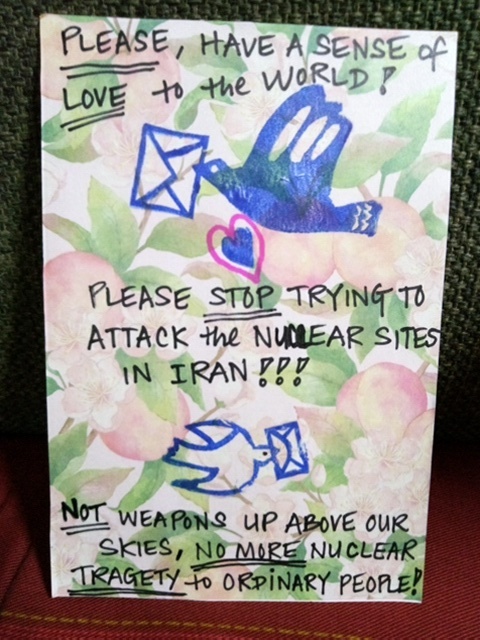 PLEASE, HAVE A SENSE of
LOVE to the WORLD!
PLEASE STOP TRYING TO
ATTACK the NUCLEAR SITES
IN IRAN!!!
NOT WEAPONS UP ABOVE OUR
SKIES, NO MORE NUCLEAR
TRAGETY to ORDINARY PEOPLE!